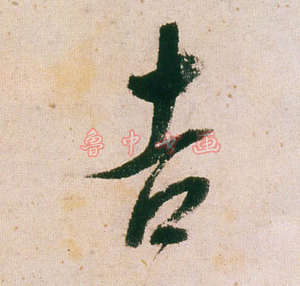 吉
鲁中书画